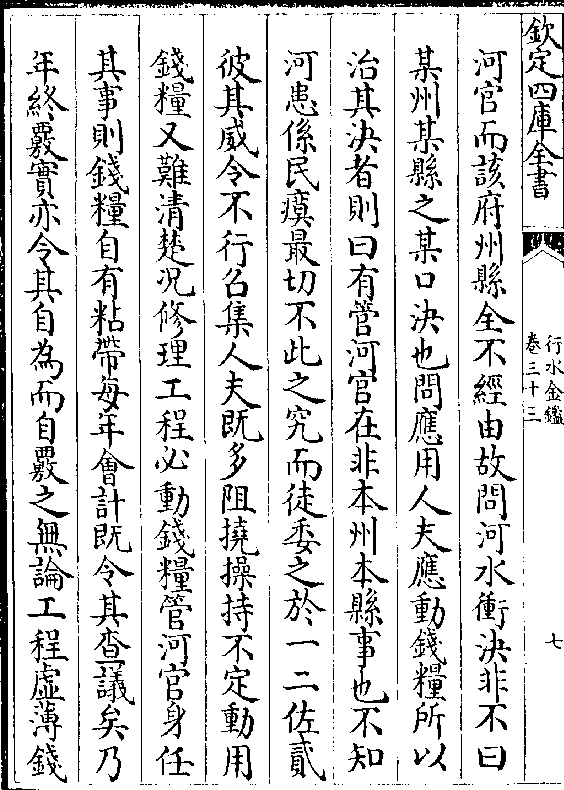 欽定四庫全書
行水金鑑
卷三十三
七
河官而該府州縣全不經由故問河水衝決非不曰
某州某縣之某口決也問應用人夫應動錢糧所以
治其決者則曰有管河官在非本州本縣事也不知
河患係民瘼最切不此之究而徒委之於一二佐貳
彼其威令不行召集人夫既多阻撓操持不定動用
錢糧又難清楚况修理工程必動錢糧管河官身任
其事則錢糧自有粘帶每年會計既令其查議矣乃
年終覈實亦令其自為而自覈之無論工程虛薄錢